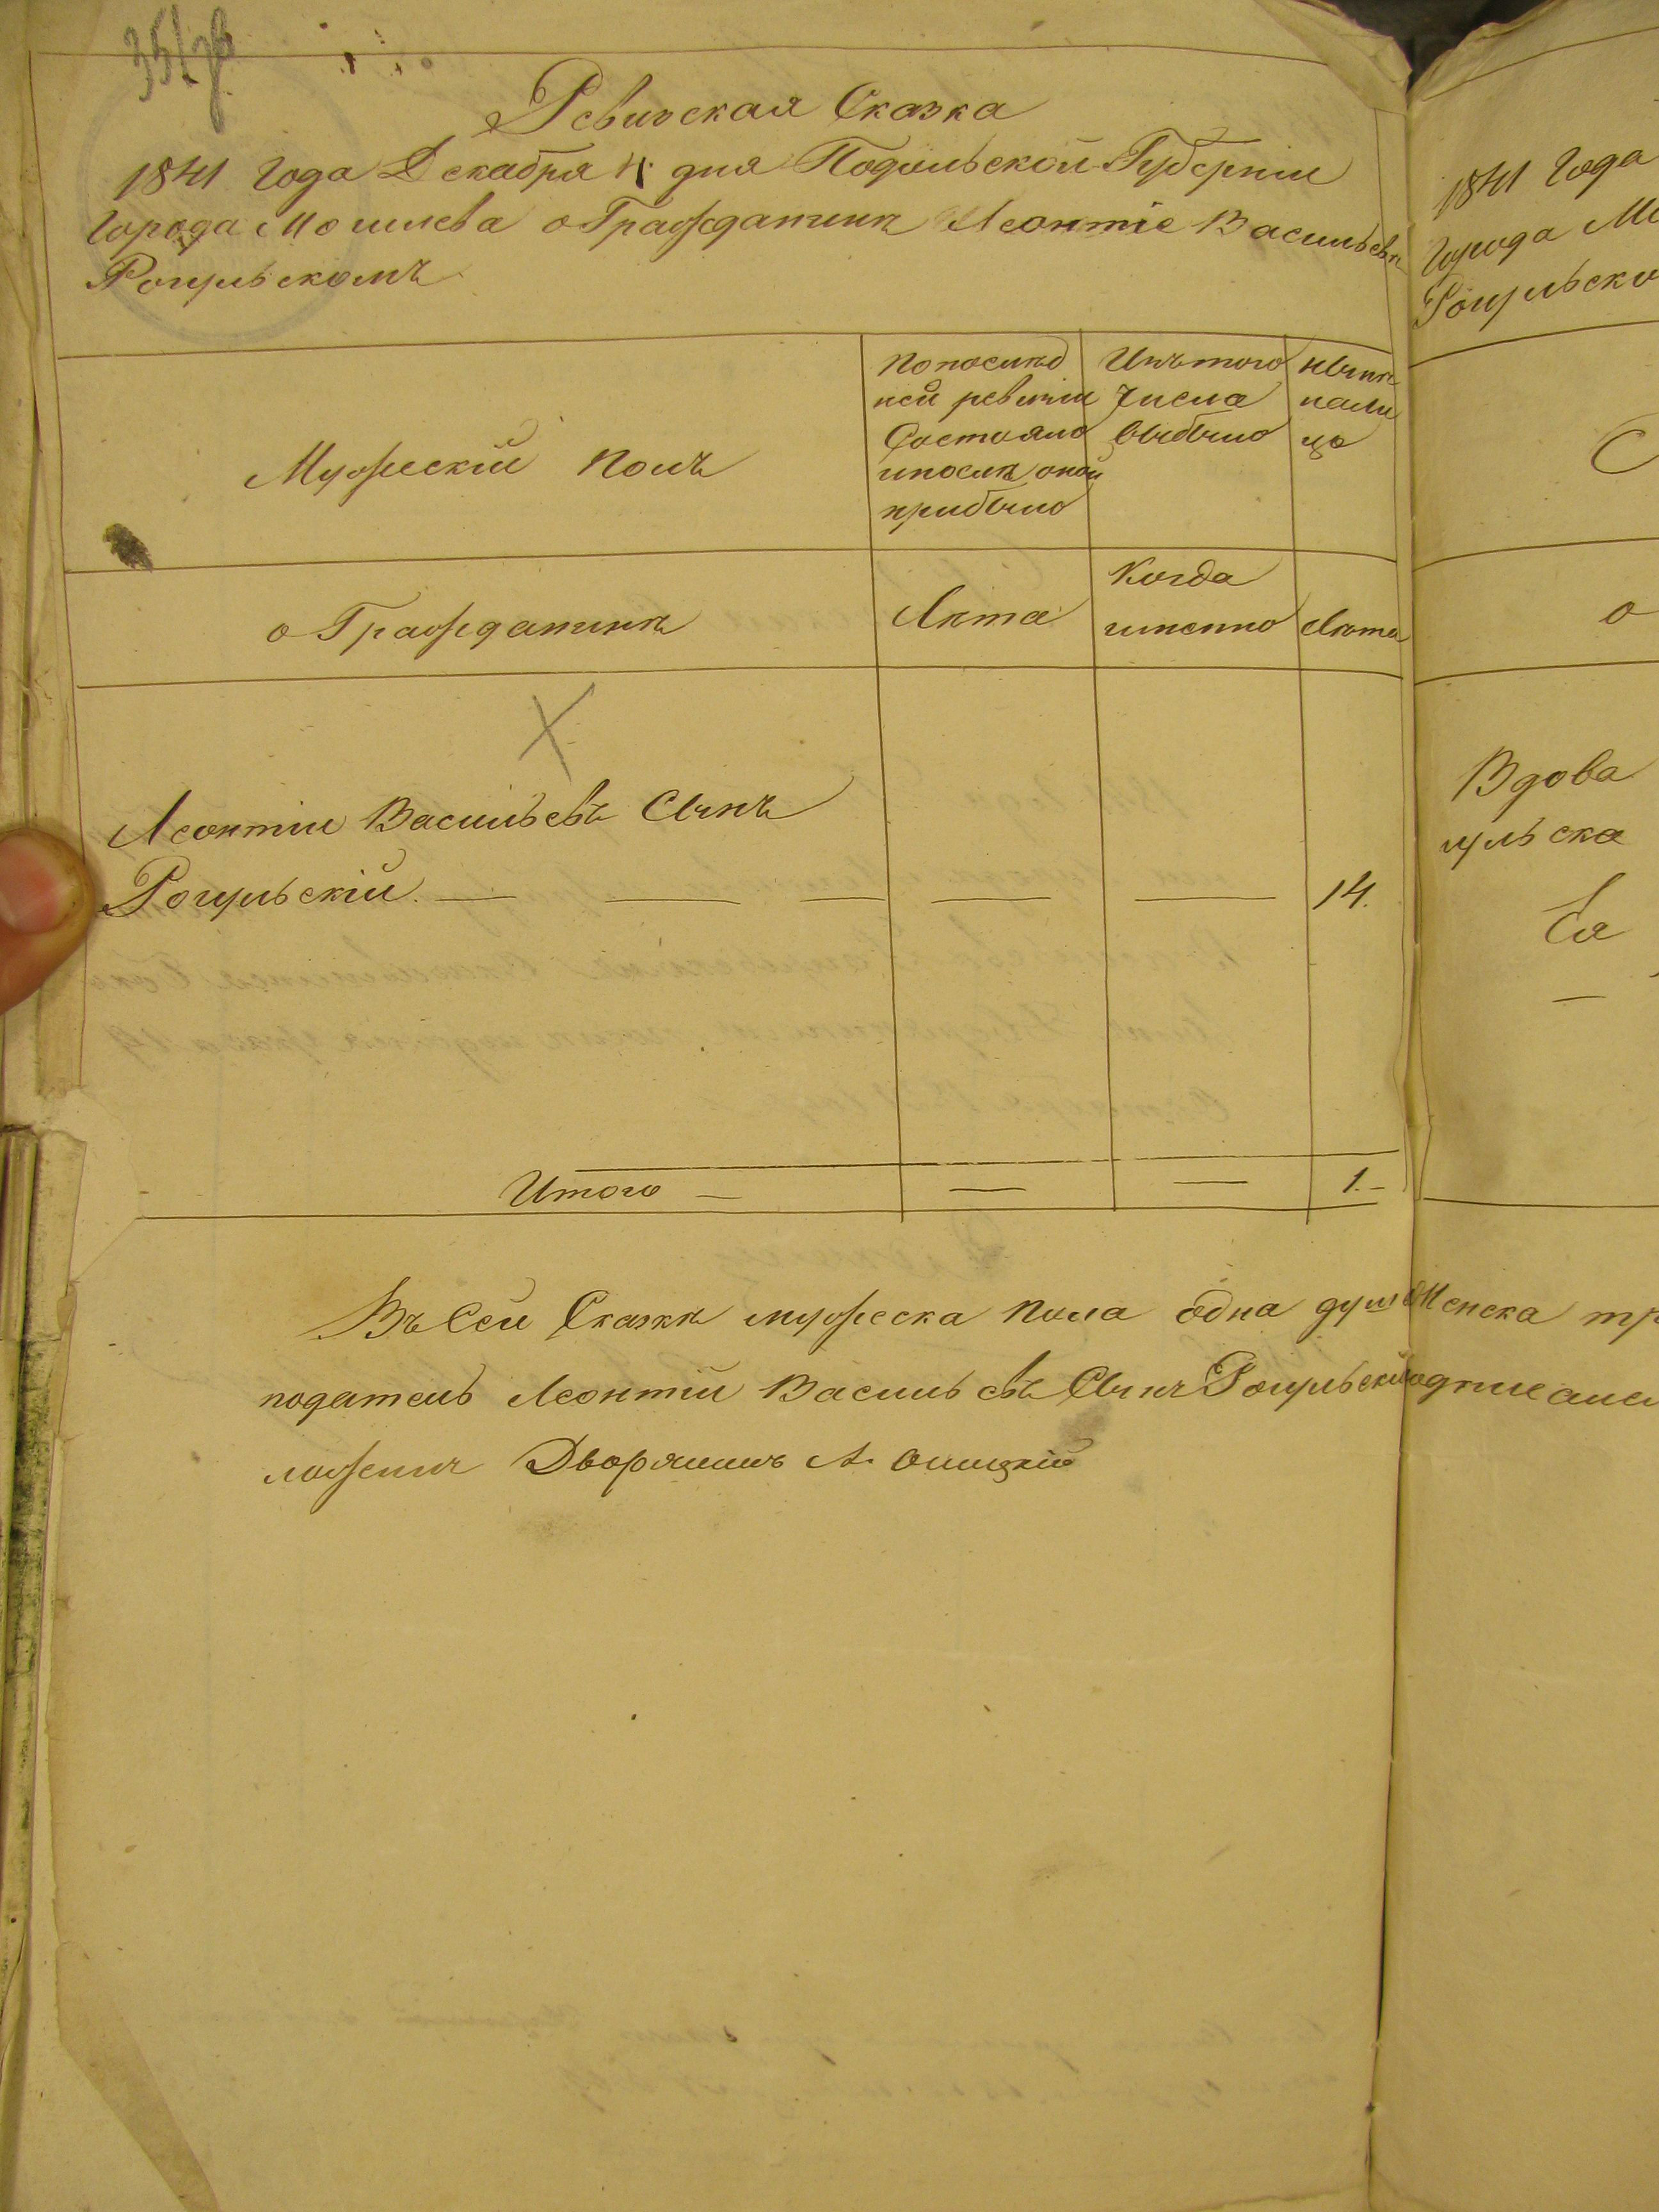 Ревизская Сказка
1841 Года Декабря 4 дня Подольской Губерніи
Города Могилева о Гражданинѣ Леонтіе Васильевѣ
Рогульскомъ
Мужескій Полъ
По послѣд
ней ревизіи
Состояло
и послѣ оной
прибыло
Изъ того
Числа
выбыло
нынѣ
нали
цо
о Гражданинѣ
Лѣта
Когда
именно
Лѣта
Леонтій Васильевъ Сынъ
Рогульскій. — — — — — 14.
Итого — — — 1.–
Въ Сей Сказкѣ мужеска пола одна душа
податель Леонтій Васильевъ Сынъ Рогульскій
Дворянинъ А.
1841 Года
Города
Рогульско
С
о
Вдова
гульска
Ея
—
женска